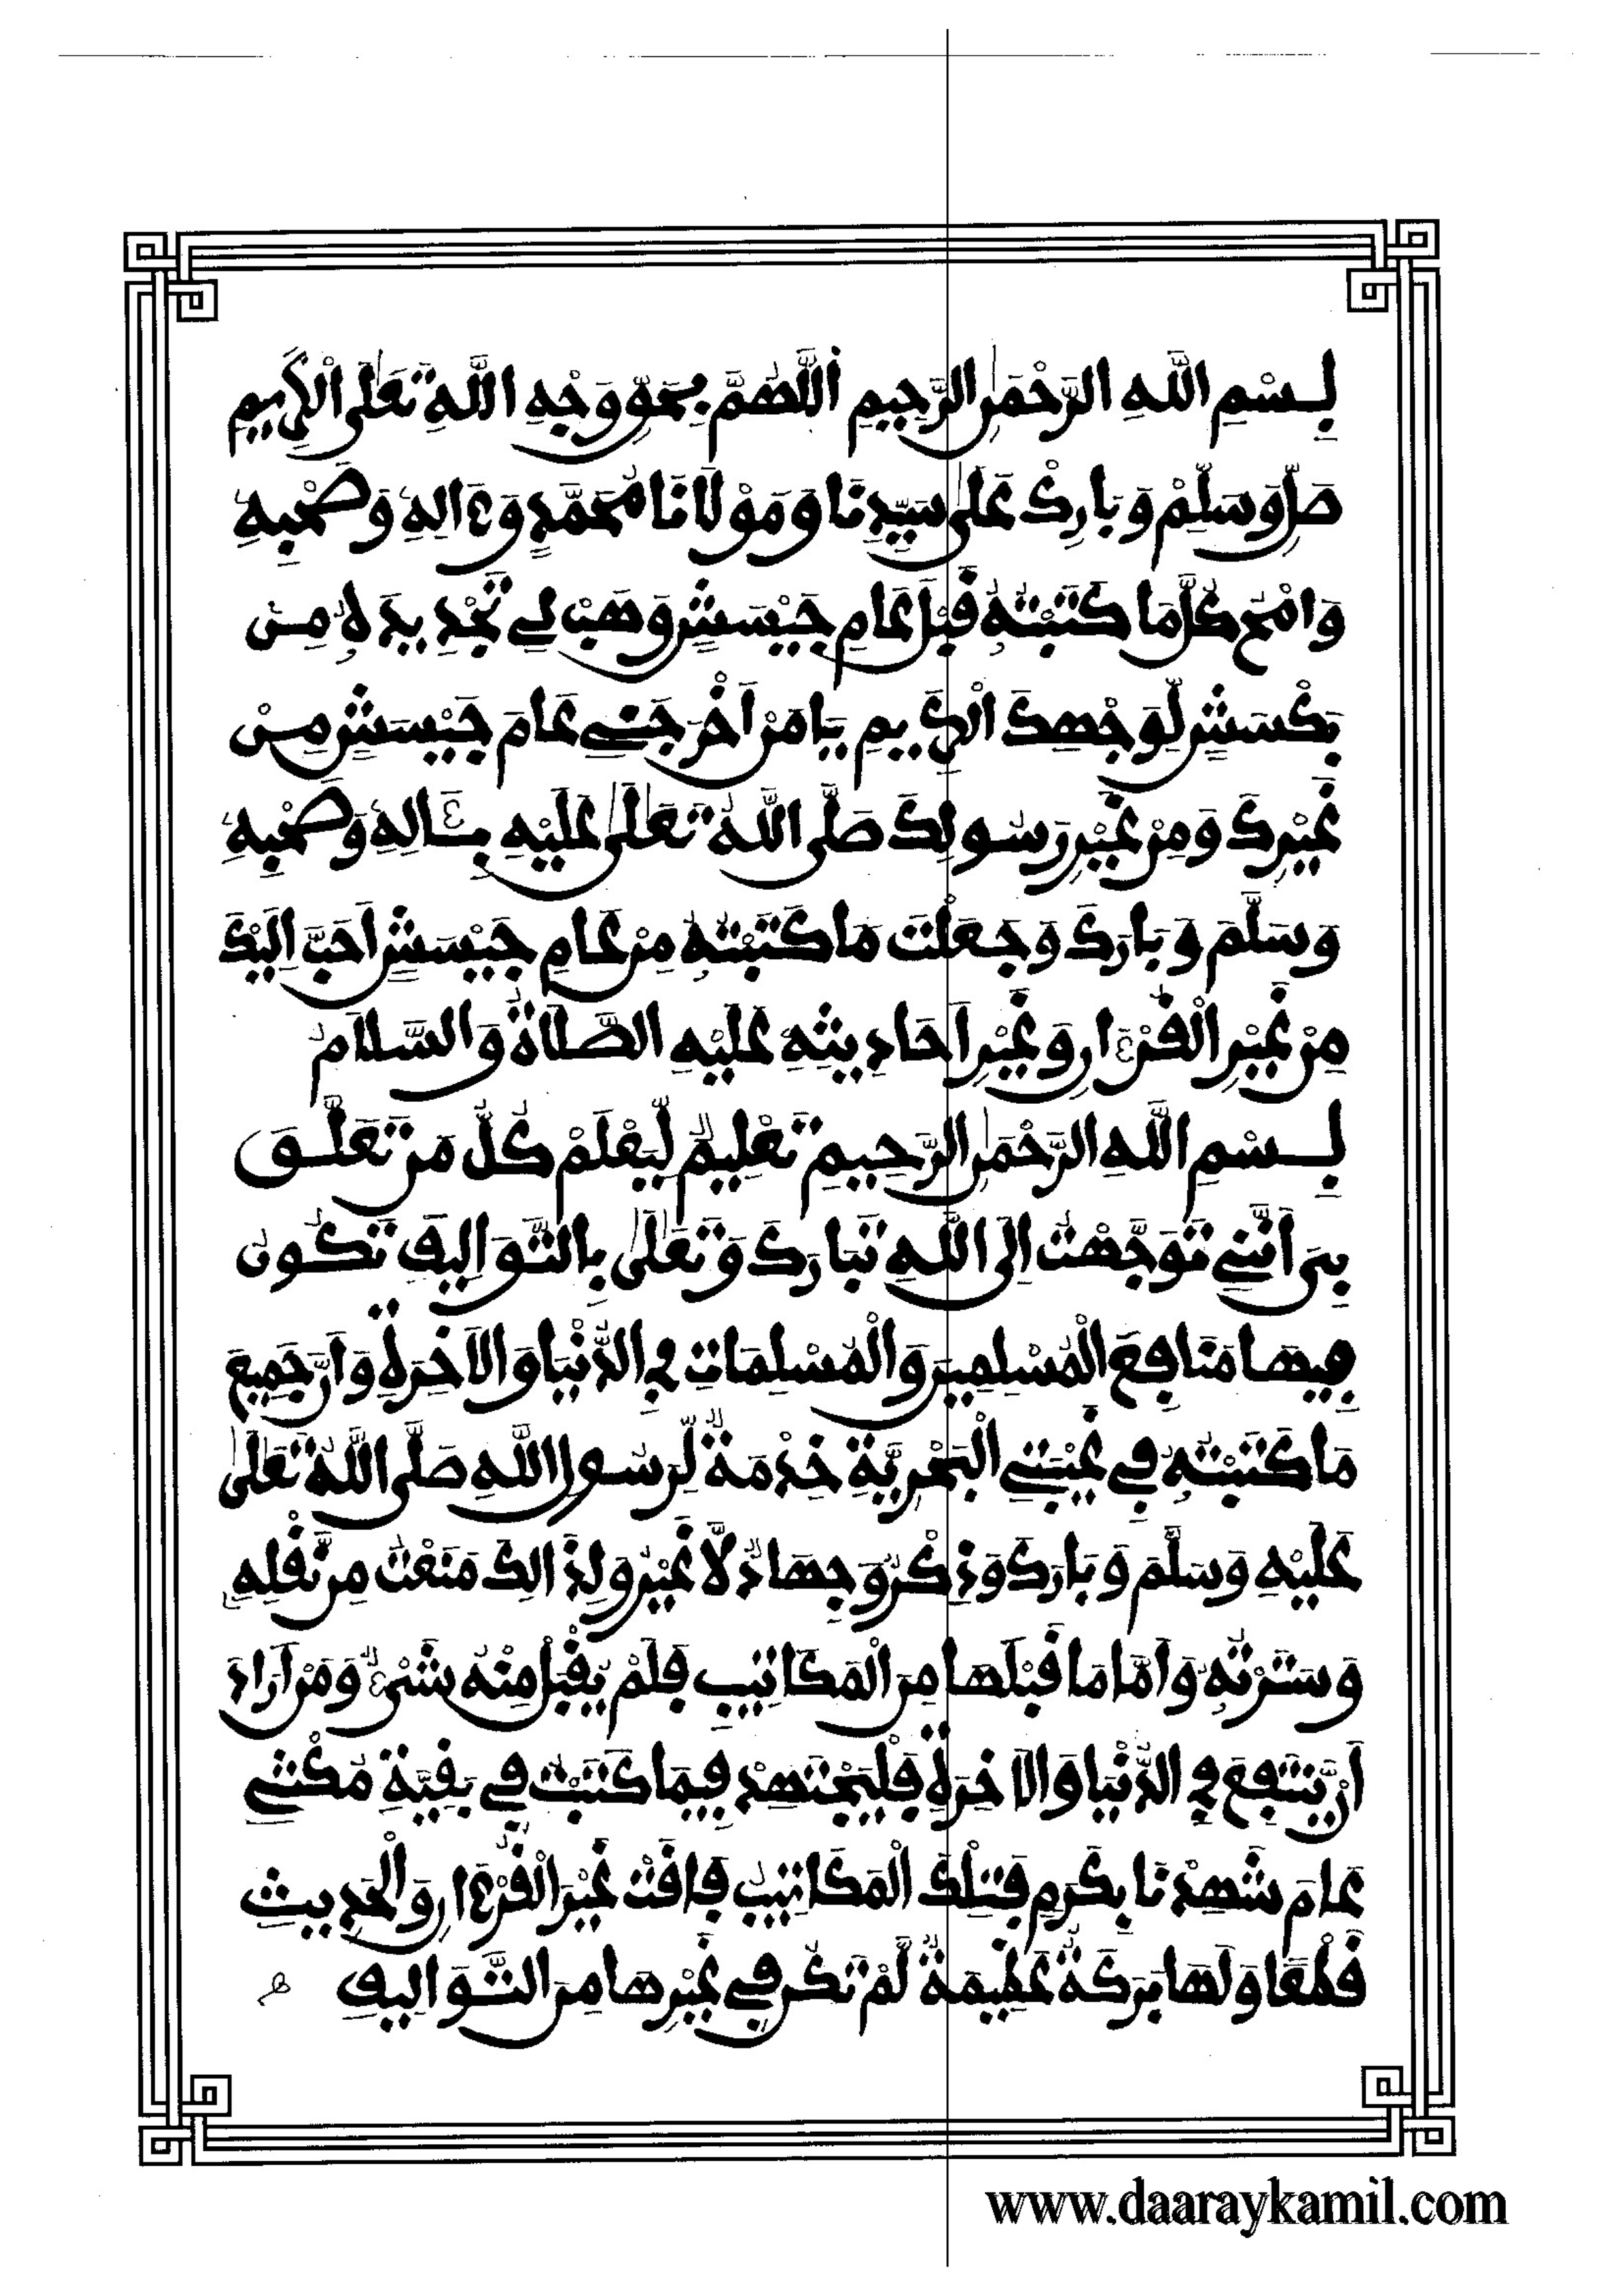 بِسْمِ اللَّهِ الرَّحْمَٰنِ الرَّحِيمِ اَللَّهُمَّ بِحَقِّ وَجْهِ اللَّهِ تَعَلَى الْكَرِيمِ
صَلِّ وَسَلِّمْ وَبَارِكْ عَلَى سَيِّدِنَا وَمَوْلَانَا مُحَمَّدٍ وَءَالِهِ وَصَحْبِهِ
وَامْحُ كُلَّ مَا كَتَبْتُهُ قَبْلَ عَامِ جَيْسَشٍ وَهَبْ لِي تَجْدِيدَهُ مِنْ
بَكْسَشٍ لِوَجْهِكَ الْكَرِيمِ يَا مَنْ اَخْرَجَنِي عَامَ جَيْسَشٍ مِنْ
غَيْرِكَ وَمِنْ غَيْرِ رَسُولِكَ صَلَّى اللَّهُ تَعَلَى عَلَيْهِ بِـَٔالِهِ وَصَحْبِهِ
وَسَلَّمَ وَبَارَكَ وَجَعَلْتَ مَا كَتَبْتُهُ مِنْ عَامِ جَيْسَشٍ اَحَبَّ اِلَيْكَ
مِنْ غَيْرِ الْقُرْءَانِ وَغَيْرِ اَحَادِيثِهِ عَلَيْهِ الصَّلَاةُ وَالسَّلَامُ
بِسْمِ اللَّهِ الرَّحْمَٰنِ الرَّحِيمِ تَعْلِيمٌ لِّيَعْلَمْ كُلُّ مَنْ تَعَلَّقَ
بِيَ اَنَّنِي تَوَجَّهْتُ اِلَى اللَّهِ تَبَارَكَ وَتَعَلَى بِالتَّوَالِيفِ تَكُونُ
فِيهَا مَنَافِعُ الْمُسْلِمِينَ وَالْمُسْلِمَاتِ فِي الدُّنْيَا وَالَاخِرَةِ وَاَنَّ جَمِيعَ
مَا كَتَبْتُهُ فِي غَيْبَتِي الْبَحْرِيَّةِ خِدْمَةٌ لِّرَسُولِ اللَّهِ صَلَّى اللَّهُ تَعَلَى
عَلَيْهِ وَسَلَّمَ وَبَارَكَ وَذِكْرٌ وَجِهَادٌ لَّا غَيْرُ وَلِذَالِكَ مَنَعْتُ مِن نَّقْلِهِ
وَسَتَرْتُهُ وَاَمَّا مَا قَبْلَهَا مِنَ الْمَكَاتِيبِ فَلَمْ يُقْبَلْ مِنْهُ شَيْءٌ وَمَنْ اَرَادَ
اَنْ يَّنْتَفِعَ فِي الدُّنْيَا وَالَاخِرَةِ فَلْيَجْتَهِدْ فِيمَا كَتَبْتُ فِي بَقِيَّةِ مُكْثِي
عَامَ شَهِدْنَا بِكَرَمٍ فَتِلْكَ الْمَكَاتِيبُ فَاقَتْ غَيْرَ الْقُرْءَانِ وَالْحَدِيثِ
قَطْعًا وَلَهَا بَرَكَةٌ عَظِيمَةٌ لَّمْ تَكُنْ فِي غَيْرِهَا مِنَ التَّوَالِيفِ
www.daaraykamil.com